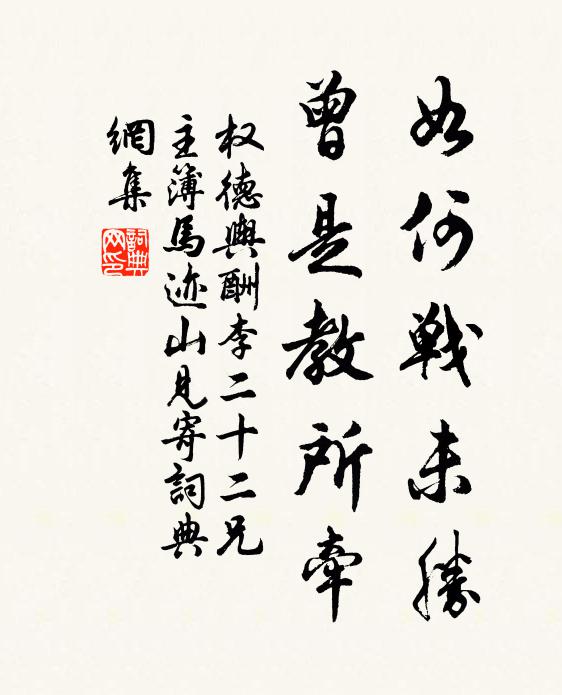 如何戰未勝
曾是教所牽
权德輿酬李二十二兄
主簿馬迹山見寄詞典
網集
詞典
网印